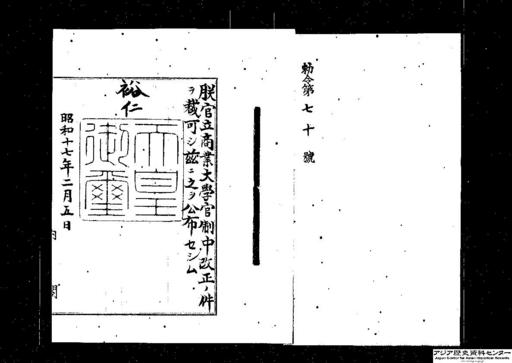 勅令第七十號
朕官立商業大學官制中改正ノ件
ヲ裁可シ茲ニ之ヲ公布セシム
裕仁
天皇御璽
昭和十七年二月五日
内閣
アジア歴史資料センター
Japan Center for Asian Historical Records